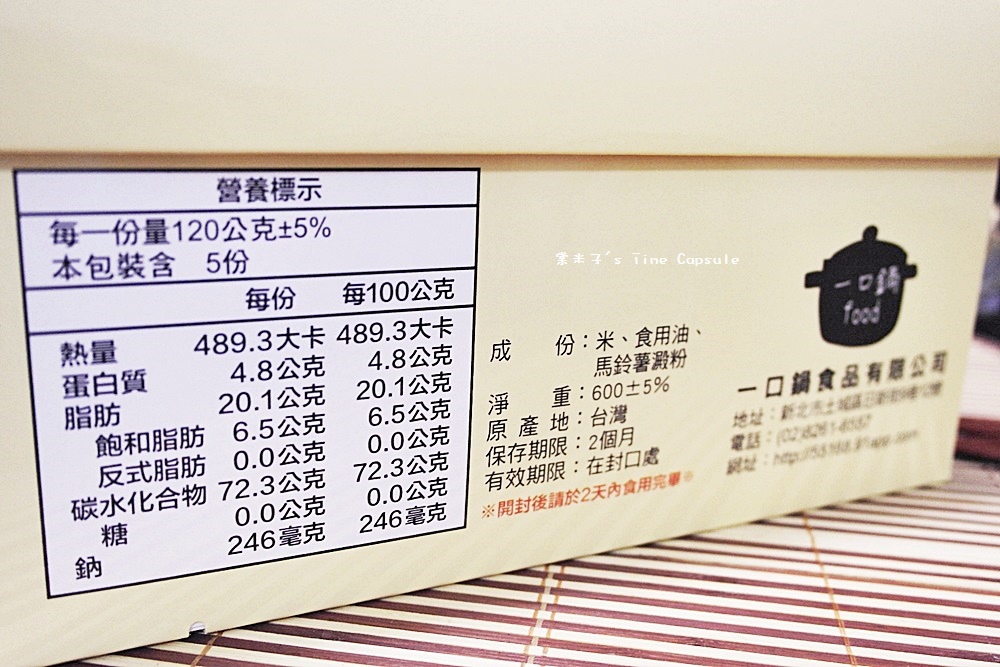 營養標示
每一份量120公克±5%
本包裝含 5份
每份 每100公克
熱量 489.3大卡 489.3大卡
蛋白質 4.8公克 4.8公克
脂肪 20.1公克 20.1公克
飽和脂肪 6.5公克 6.5公克
反式脂肪 0.0公克 0.0公克
碳水化合物 72.3公克 72.3公克
糖 0.0公克 0.0公克
鈉 246毫克 246毫克
業未子's Time Capsule
成 份：米、食用油、
馬鈴薯澱粉
淨 重：600±5%
原 產 地：台灣
保存期限：2個月
有效期限：在封口處
※開封後請於2天內食用完畢※
一口鍋
food
一口鍋食品有限公司
地址：新北市土城區
電話：(02)8261-
網址：http://